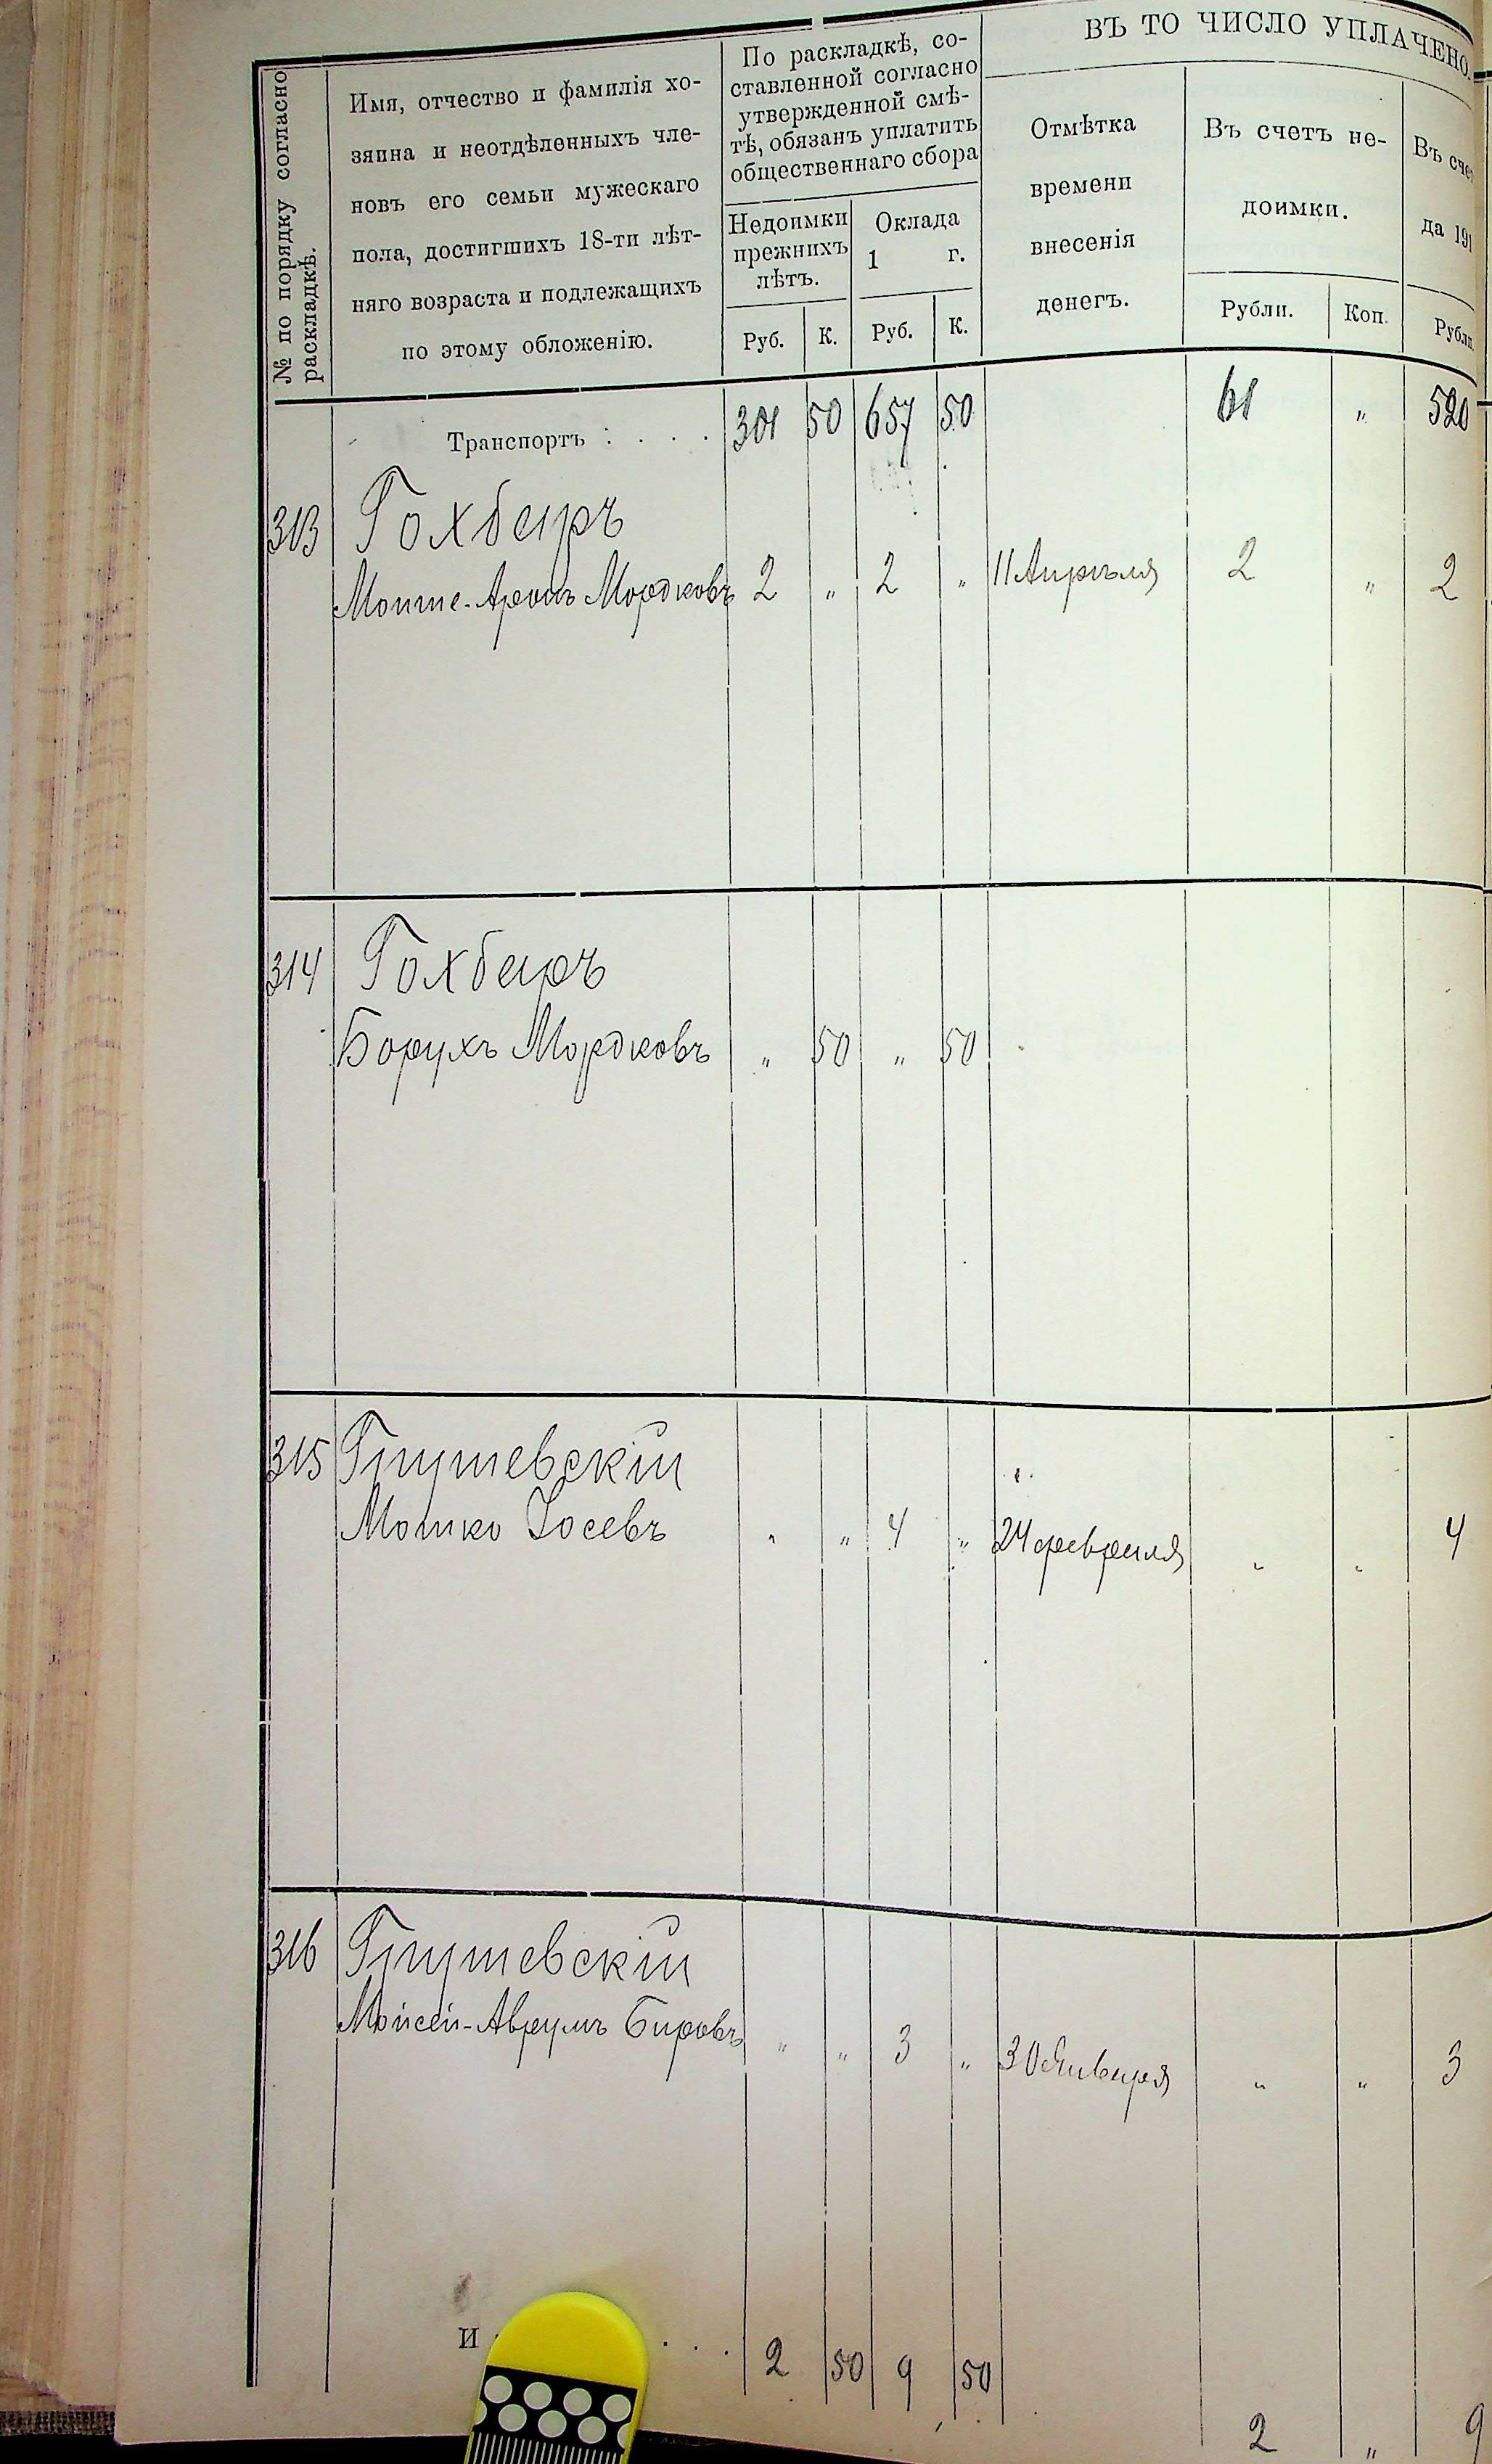 ВЪ ТО ЧИСЛО УПЛАЧЕНО.
№ по порядку согласно
раскладкѣ.
Имя, отчество и фамилія хо-
зяина и неотдѣленныхъ чле-
новъ его семьи мужескаго
пола, достигшихъ 18-ти лѣт-
няго возраста и подлежащихъ
по этому обложенію.
По раскладкѣ, со-
ставленной согласно
утвержденной смѣ-
тѣ, обязанъ уплатить
общественнаго сбора
Недоимки
прежнихъ
лѣтъ.
Оклада
1 г.
Руб. К. Руб. К.
Отмѣтка
времени
внесенія
денегъ.
Въ счетъ не-
доимки.
Рубли. Коп.
Въ сче
да 191
Рубли.
Транспортъ . . . . 301 50 657 50 61 „ 520
313 Гохберъ
Мошке-Аронъ Мордковъ 2 „ 2 „ 11 Апрѣля 2 „ 2
314 Гохберъ
Борухъ Мордковъ „ 50 „ 50
315 Глушевскій
Мошко Іосевъ „ „ 4 „ 24 февраля „ „ 4
316 Глушевскій
Мойсей-Аврумъ Бировъ „ „ 3 „ 30 Января „ „ 3
И . . . 2 50 9 50
2 „ 9